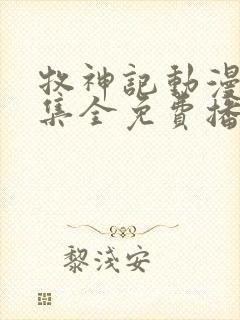 牧神記動漫
集全免費播
黎淺安